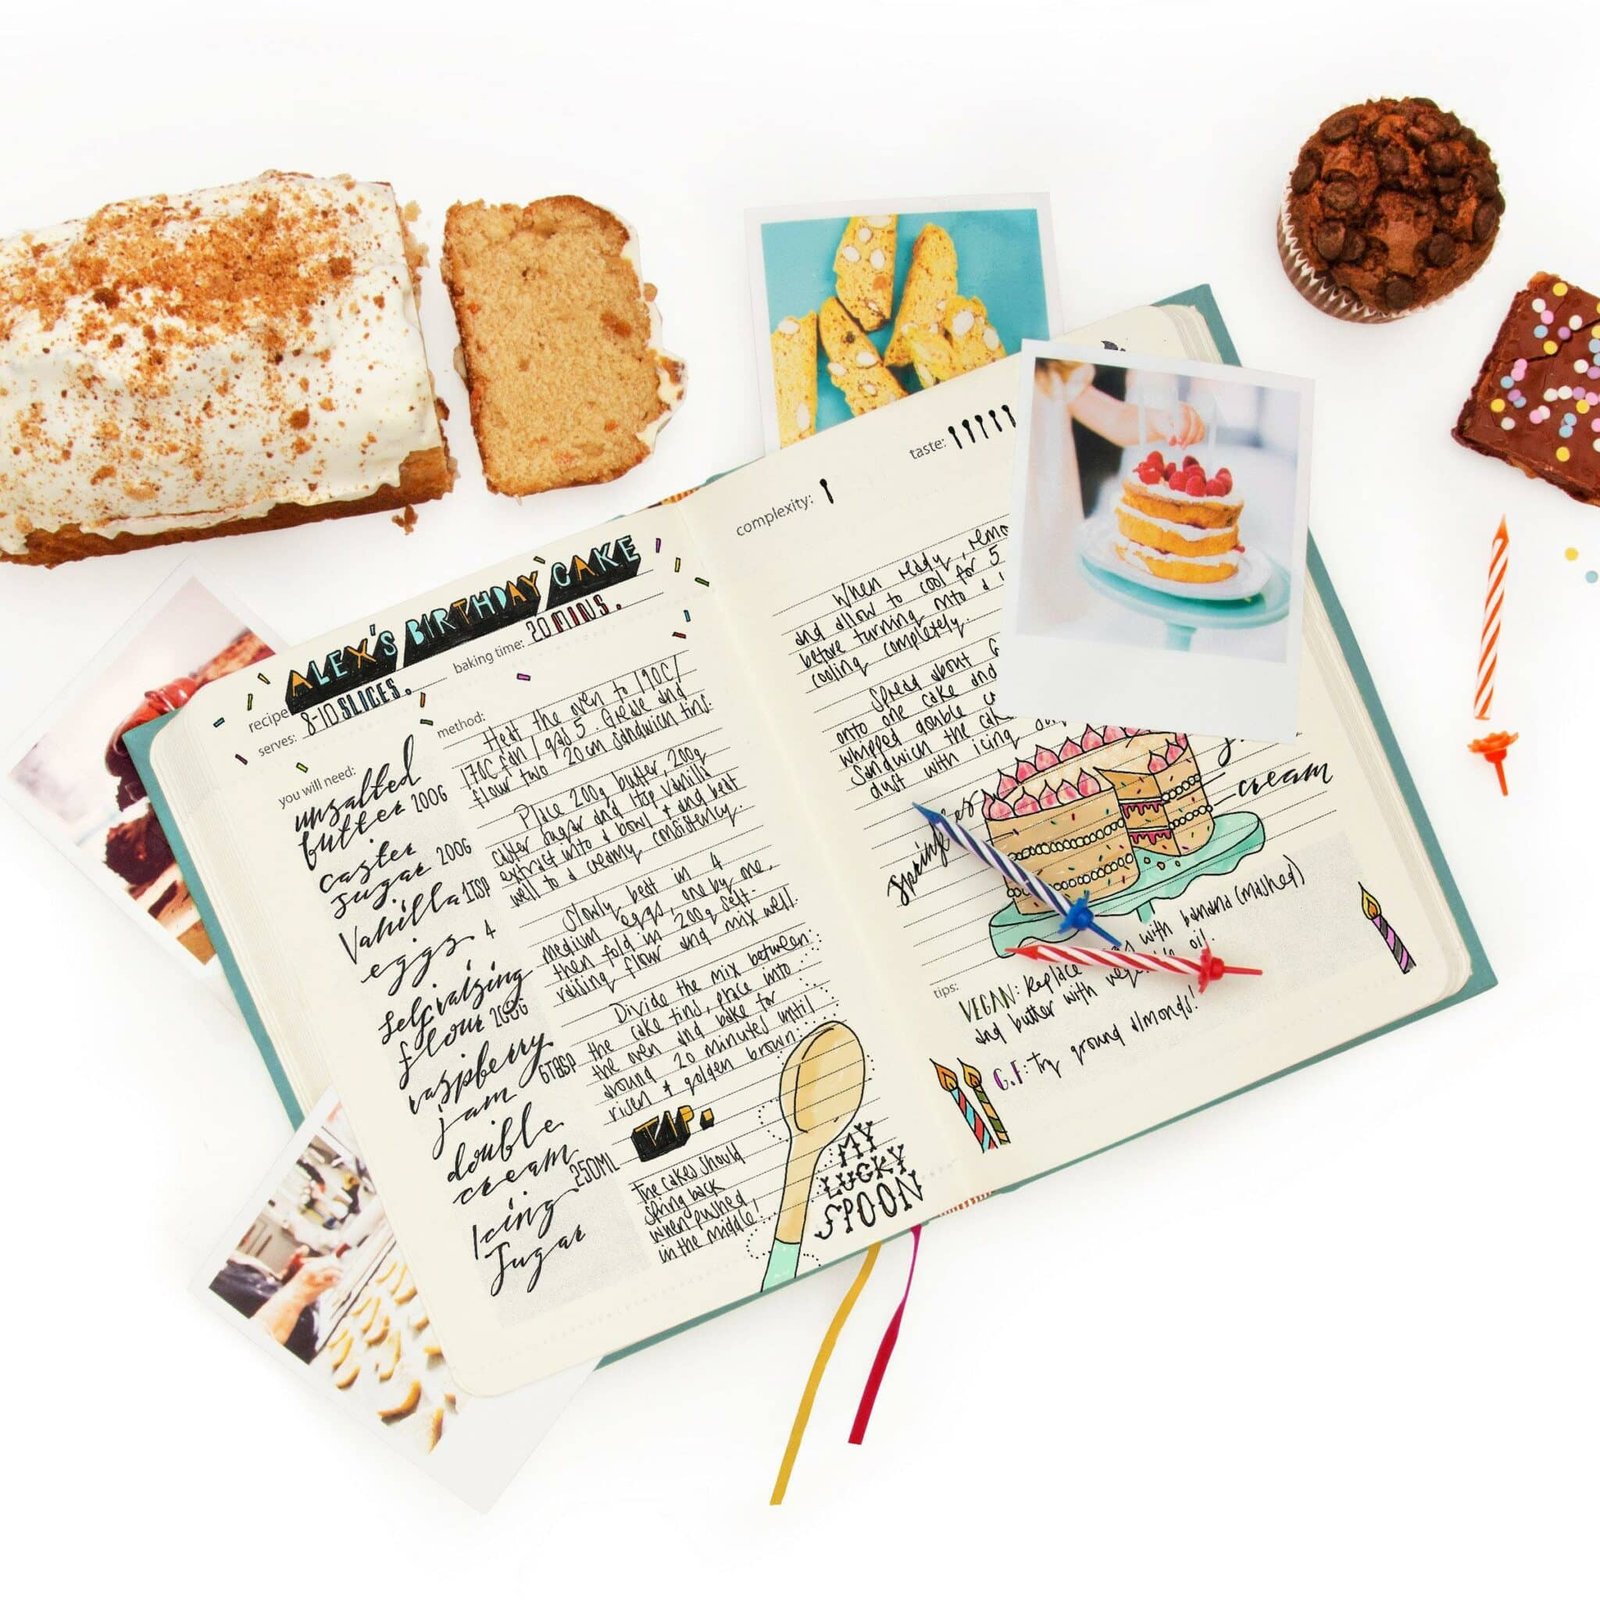 recipe ALEX'S BIRTHDAY CAKE
serves: 8-10 SLICES. baking time: 20 MINS.
you will need:
unsalted
butter 200G
caster
sugar 200G
Vanilla 1TSP
eggs 4
self raising
flour 200G
raspberry
jam 6TBSP
double
cream 250ML
Icing
Sugar
method:
Heat the oven to 190C/
170C fan/gas 5. Grease and
flour two 20cm sandwich tins.
Place 200g butter, 200g
caster sugar and 1tsp vanilla
extract into a bowl and beat
well to a creamy consistency.
Slowly beat in 4
medium eggs, one by me,
then fold in 200g self-
raising flour and mix well.
Divide the mix between
the cake tins, place into
the oven and bake for
around 20 minutes until
risen & golden brown.
TIP:
The cakes should
spring back
when pushed
in the middle!
MY
LUCKY
SPOON
complexity:
taste:
When ready, remo
and allow to cool for 5
before turning onto a
cooling completely.
Spread about 6
onto one cake and
whipped double
Sandwich the cake
dust with icing
cream
tips:
VEGAN: Replace with banana (mashed)
and butter with oil.
G.F: Try ground almonds!